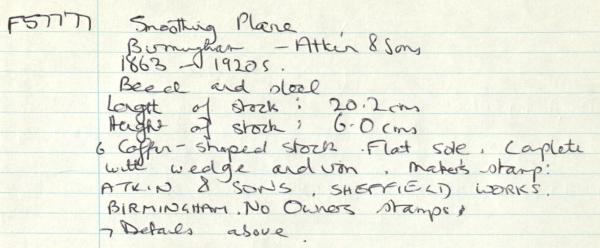 F57777 Smoothing Plane
Birmingham - Atkin & Sons
1863 - 1920s.
Beech and steel
Length of stock : 20.2 cms
Height of stock : 6.0 cms
6 Coffin-shaped stock. Flat sole. Complete
with wedge and iron. Maker's stamp:
ATKIN & SONS. SHEFFIELD WORKS.
BIRMINGHAM. No Owners stamps.
→ Details above.